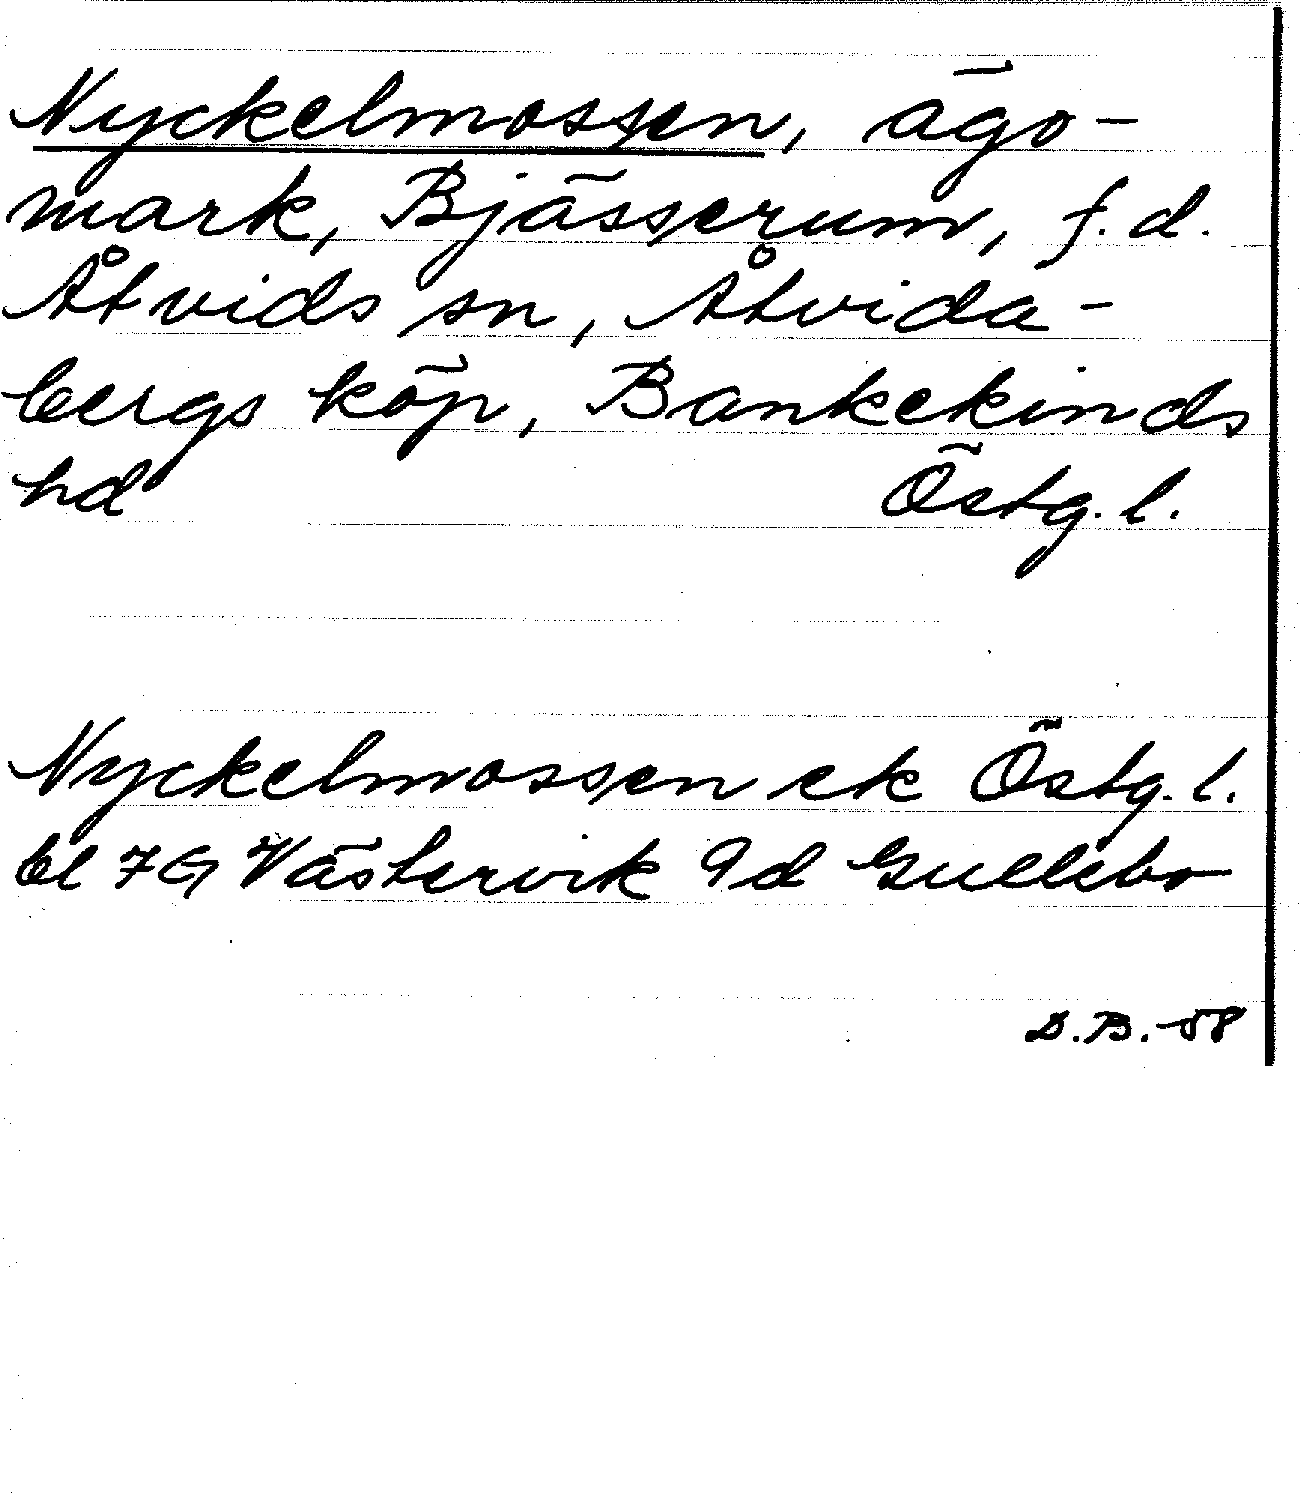 Nyckelmossen, ägo-
mark, Bjässerum, f.d.
Åtvids sn, Åtvida-
bergs köp, Bankekinds
hd Östg. l.
Nyckelmossen ek Östg. l.
bl 7G Västervik 9d Gullebo
D.B.-58